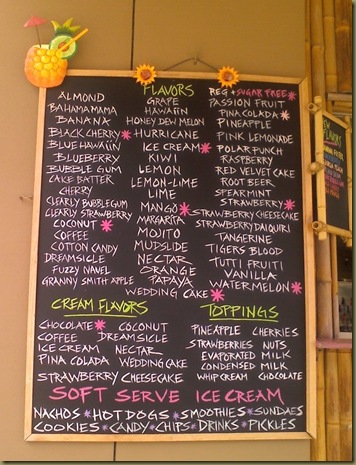 FLAVORS
ALMOND
BAHAMA MAMA
BANANA
BLACK CHERRY*
BLUE HAWAIIN
BLUEBERRY
BUBBLE GUM
CAKE BATTER
CHERRY
CLEARLY BUBBLEGUM
CLEARLY STRAWBERRY
COCONUT*
COFFEE
COTTON CANDY
DREAMSICLE
FUZZY NAVEL
GRANNY SMITH APPLE
GRAPE
HAWAIIN
HONEY DEW MELON
HURRICANE
ICE CREAM*
KIWI
LEMON
LEMON-LIME
LIME
MANGO*
MARGARITA
MOJITO
MUDSLIDE
NECTAR
ORANGE
PAPAYA
WEDDING CAKE*
REG + SUGAR FREE*
PASSION FRUIT
PINA COLADA*
PINEAPPLE
PINK LEMONADE
POLAR PUNCH
RASPBERRY
RED VELVET CAKE
ROOT BEER
SPEARMINT
STRAWBERRY*
STRAWBERRY CHEESECAKE
STRAWBERRY DAIQUIRI
TANGERINE
TIGERS BLOOD
TUTTI FRUITI
VANILLA
WATERMELON*
CREAM FLAVORS
CHOCOLATE* COCONUT
COFFEE DREAMSICLE
ICE CREAM NECTAR
PINA COLADA WEDDING CAKE
STRAWBERRY CHEESECAKE
TOPPINGS
PINEAPPLE CHERRIES
STRAWBERRIES NUTS
EVAPORATED MILK
CONDENSED MILK
WHIP CREAM CHOCOLATE
SOFT SERVE ICE CREAM
NACHOS*HOT DOGS*SMOOTHIES*SUNDAES
COOKIES*CANDY*CHIPS*DRINKS*PICKLES